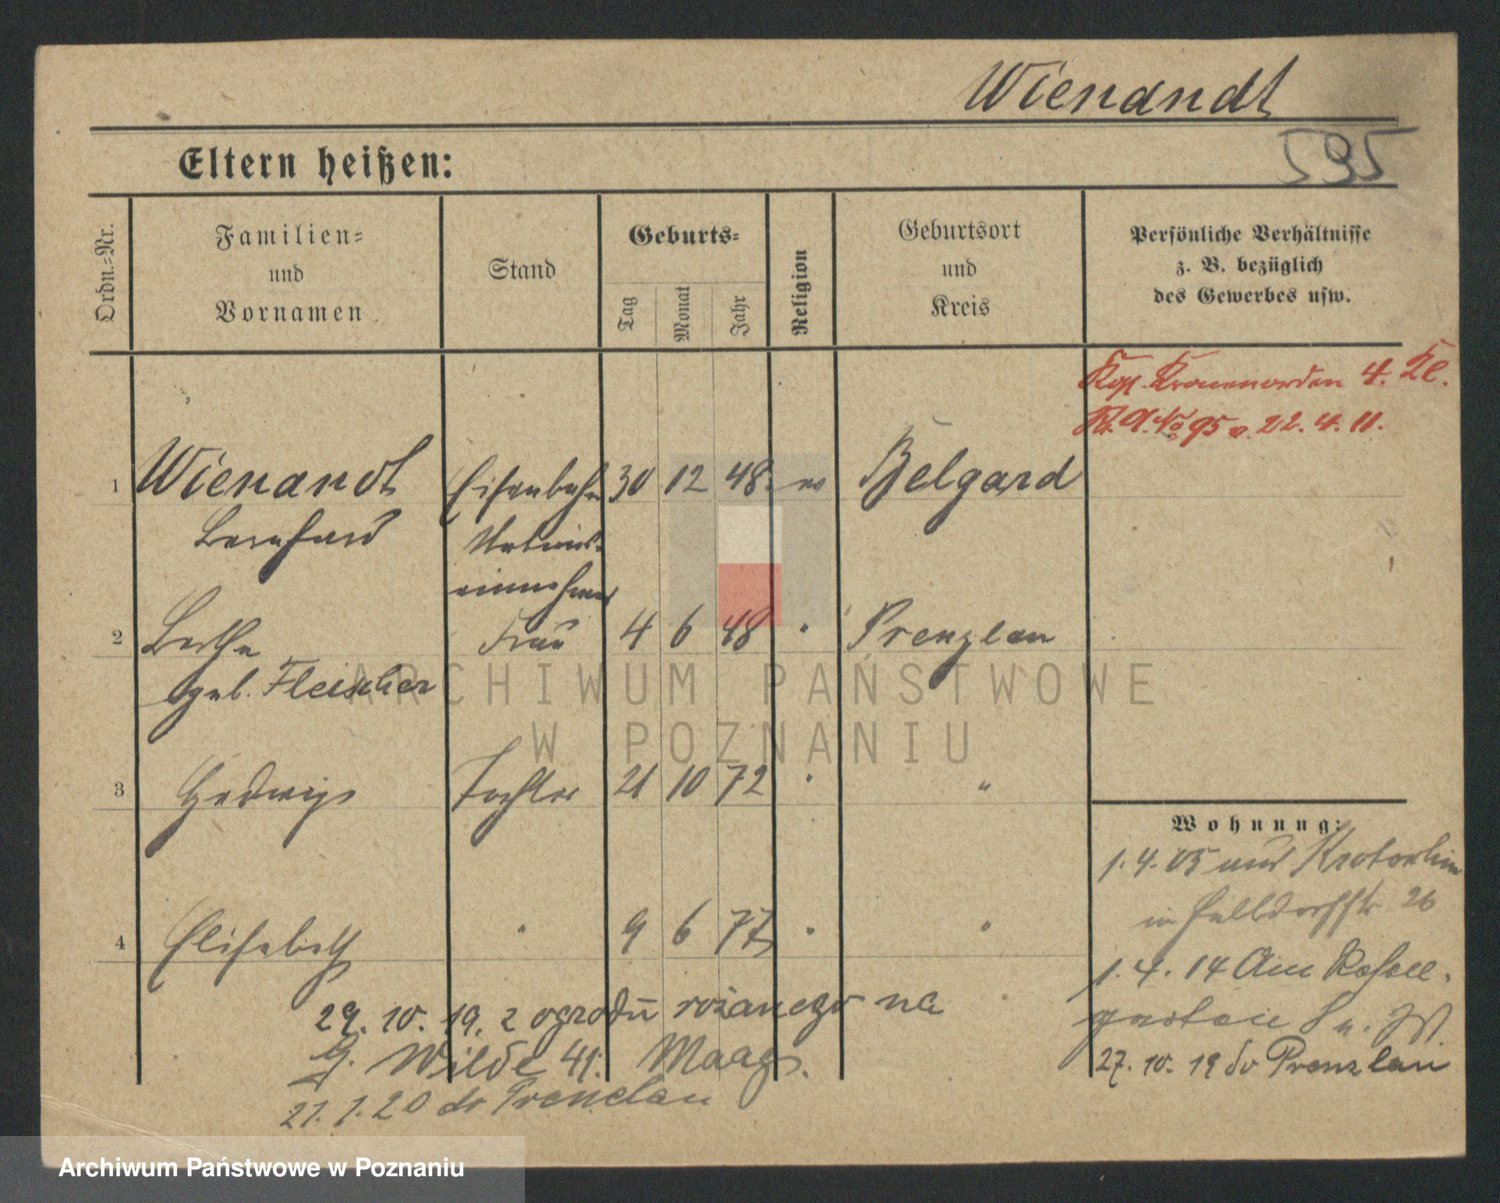 Wienandt
595
Eltern heißen:
Ordn.=Nr.
Familien=
und
Vornamen
Stand
Geburts=
Tag
Monat
Jahr
Religion
Geburtsort
und
Kreis
Persönliche Verhältnisse
z. B. bezüglich
des Gewerbes usw.
Kgl. Kronenorden 4. Kl.
R. A. No 95 v. 22. 4. 11.
1 Wienandt Eisenbahn 30 12 48. ev Belgard
Bernhard Betriebs-
einnehmer
2 Berthe Frau 4 6 48 " Prenzlau
geb. Fleischer
3 Hedwig Tochter 21 10 72 " "
4 Elisabeth " 9 6 77 " "
Wohnung:
1. 4. 05 aus Krotoschin
in Helldorffstr 26
1. 4. 14 Am Rosen-
garten
27. 10. 19 do Prenzlau
29. 10. 19. z ogrodu rożanego na
G. Wilde 41. Maag.
21. 1. 20 do Prenclau
ARCHIWUM PAŃSTWOWE
W POZNANIU
Archiwum Państwowe w Poznaniu